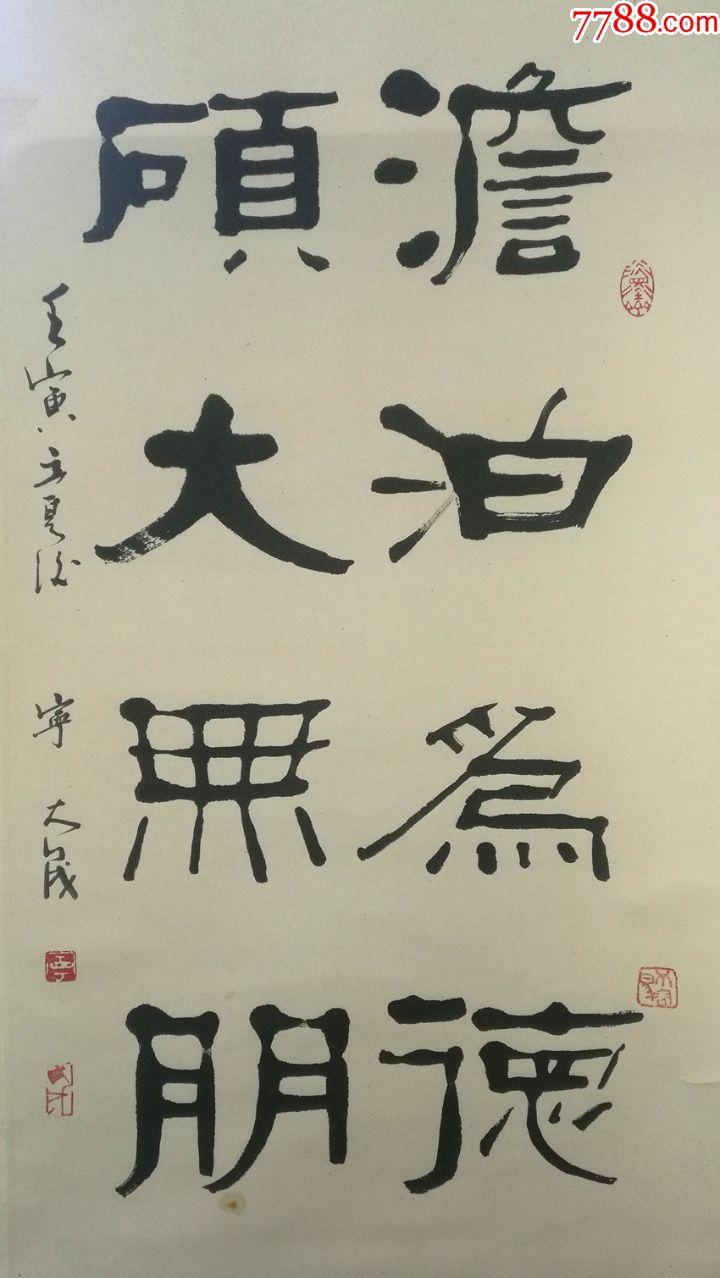 澹泊為德
碩大無朋
壬寅立夏後 寧大晟
7788.com